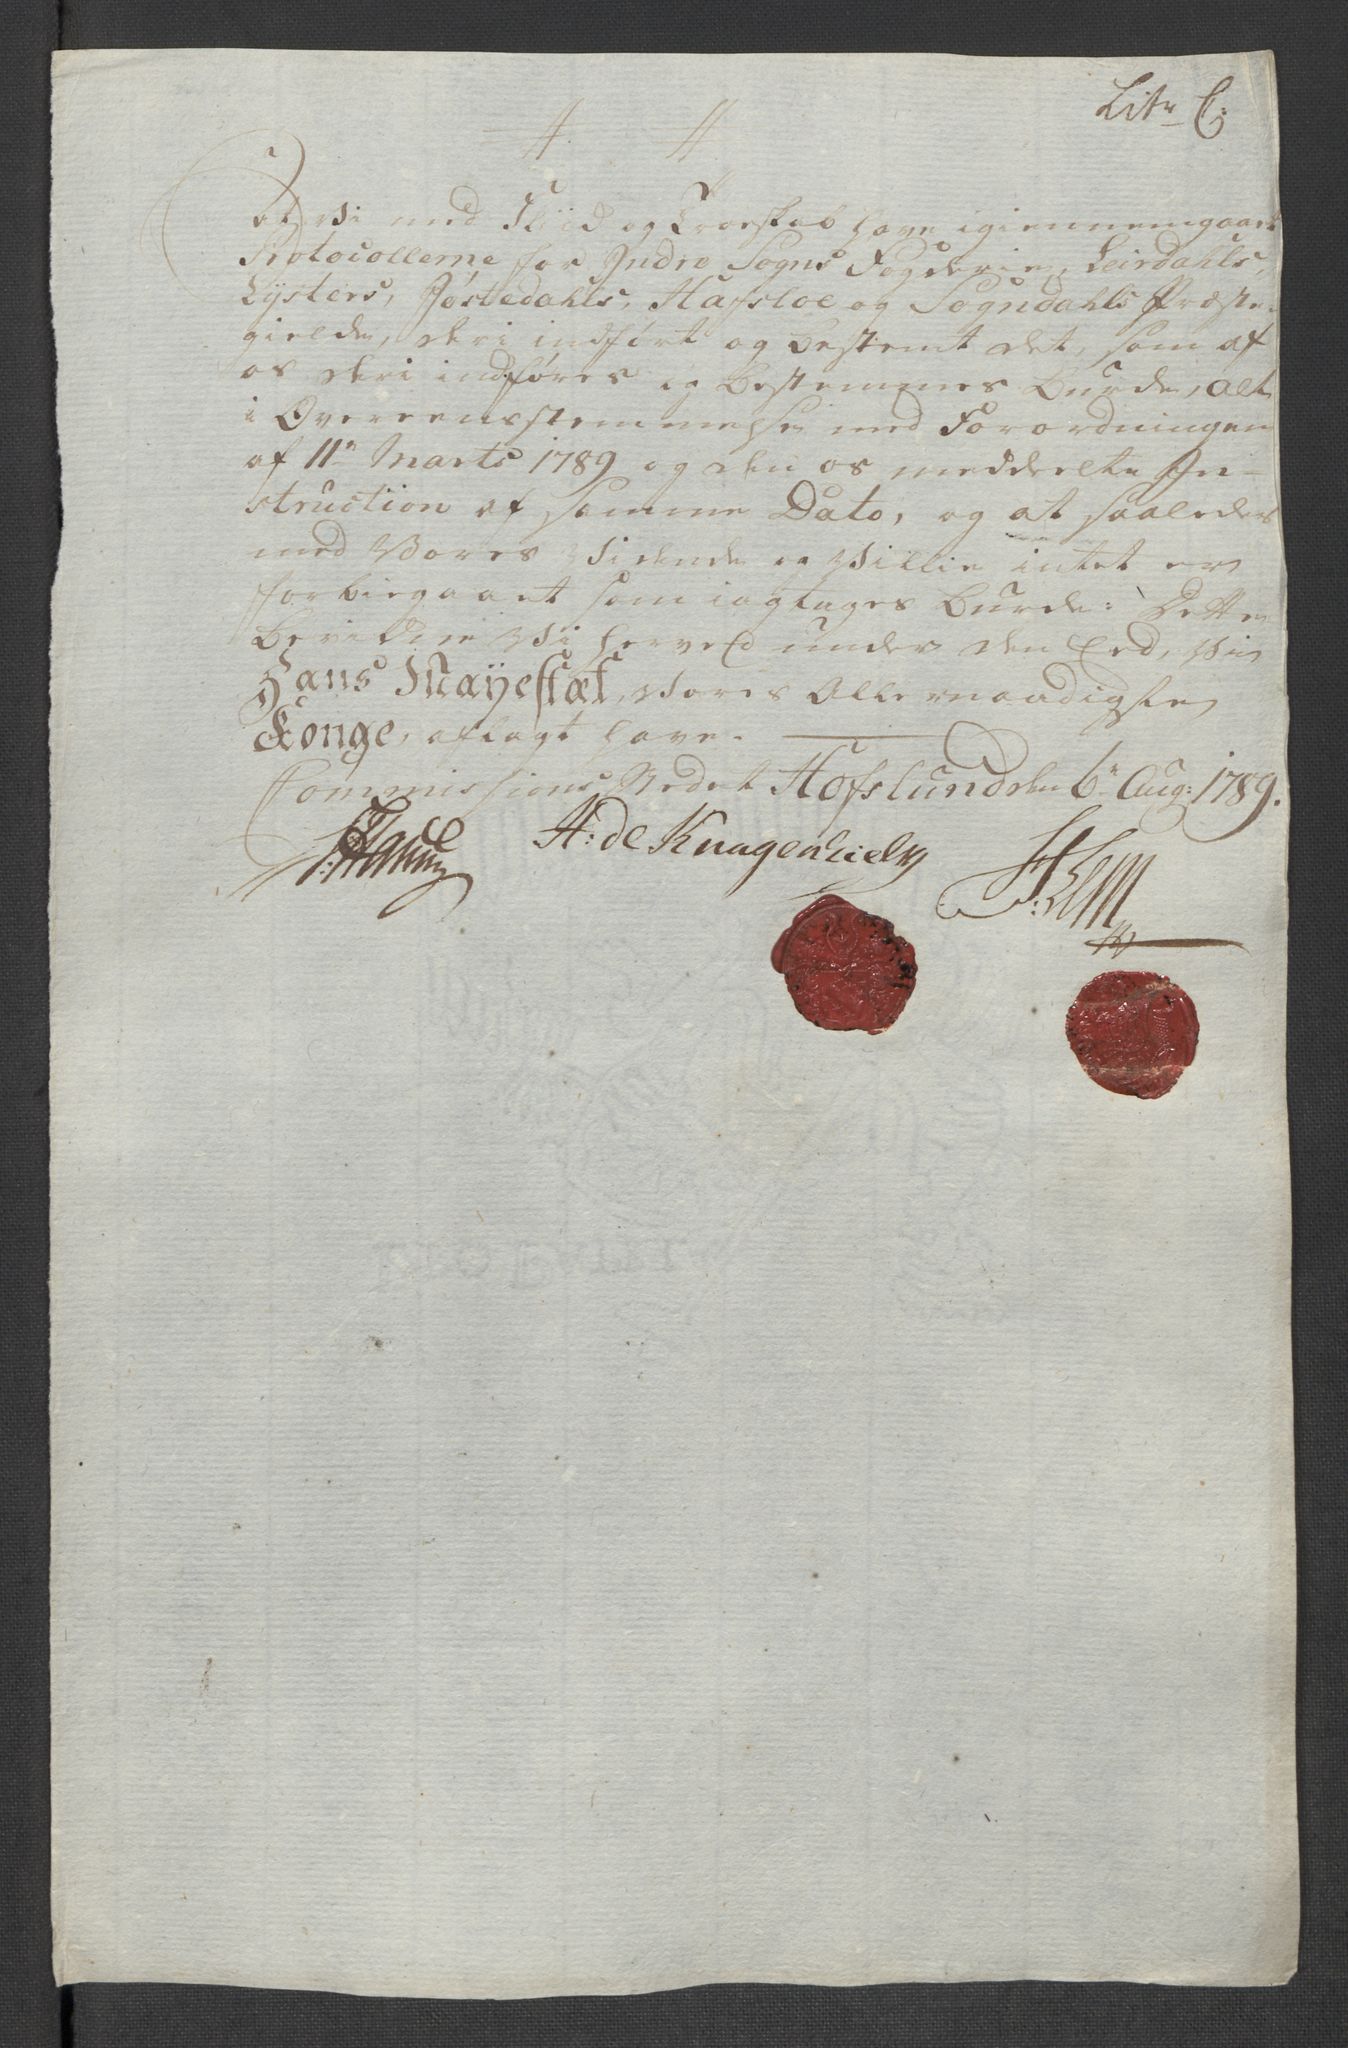 Litr C:
at Vi med Fliid og Troeskab have igiennemgaaet
Protocollerne for Indre Sogns Fogderie, Leirdahls,
Lysters, Jøstedahls, Hafsloe og Sogndahls Præste-
gielde, deri indført og bestemt det, som af
os deri indføres og bestemmes burde, alt
i Overeensstemmelse med Forordningen
af 11te Marts 1789 og den os meddeelte In-
struction af samme Dato, og at saaledes
med Vores Vidende og Villie intet er
forbiegaaet som iagtages burde: Dette
Vi herved under den Eed, Vi
Hans Mayestæt, Vores Allernaadigste
Konge, aflagt have.
Commissions Stedet Hofslund den 6te Aug: 1789.
A: de Knagenhielm H: Lem